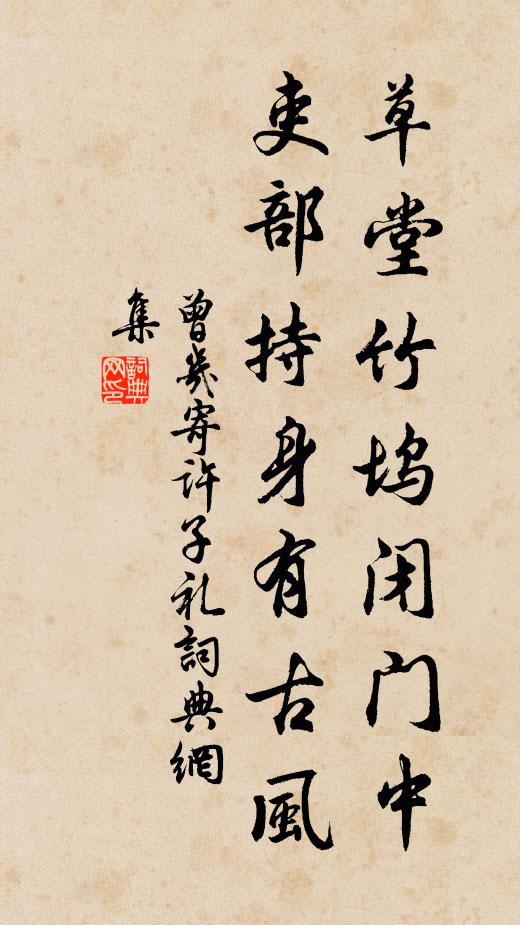 草堂竹坞闭门中
吏部持身有古風
曾幾寄许子礼詞典網
集
詞典
网印